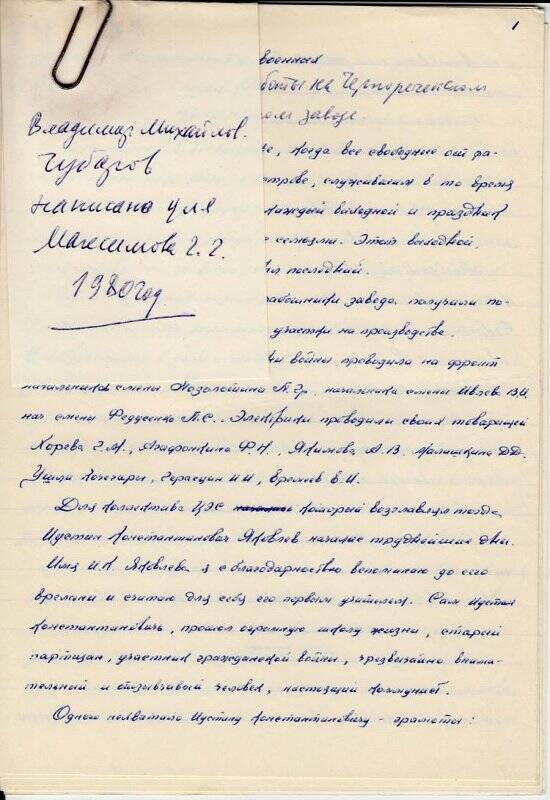 1
Владимир Михайлов.
Чубаров
написано для
Максимова Г. Г.
1980 год
военных
боты на Чернореченском
ом заводе
е, когда все свободные от ра-
строве, служившем в то время
каждый выходной и праздник
с семьями. Этот выходной
последний.
работники завода получали по-
участки на производстве.
войны проводила на фронт
начальников смены П. Гр., начальника смены Ивлева В.И.
нач смены Федусенко П.С. Электрики проводили своих товарищей
Хорева Г.М., Агафонкина Ф.Н., Якимова А.В. Малашкина Д.Д.
Ушли кочегары, Герасцин И.И., Еремеев Е.И.
Для коллектива ЦЭС который возглавлял тогда,
Иустин Константинович Яковлев начались труднейшие дни.
Имя И.К. Яковлева я с благодарностью вспоминаю до сего
времени и считаю для себя его первым учителем. Сам Иустин
Константинович, прошел огромную школу жизни, старый
партизан, участник гражданской войны, чрезвычайно внима-
тельный и отзывчивый человек, настоящий коммунист.
Одного нехватало Иустину Константиновичу - грамоты: